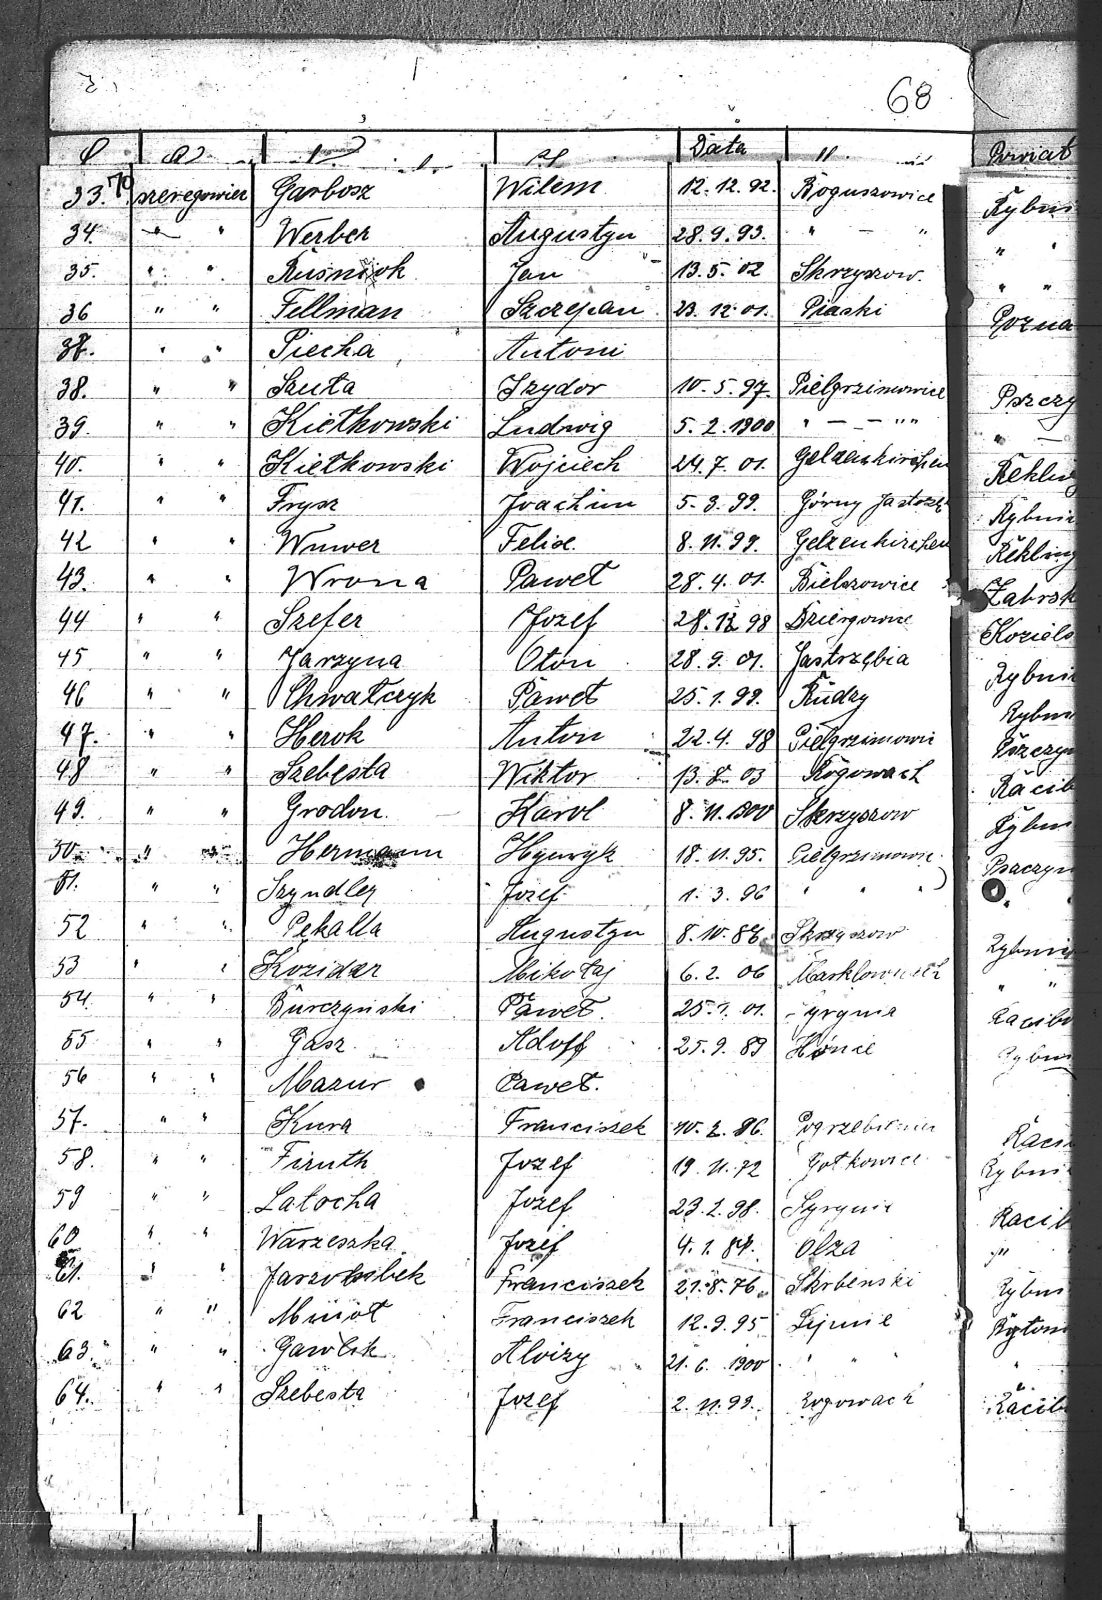 68
Data Powiat
33. 70 szeregowiec Garbosz Wilem 12.12.92. Boguszowice Rybni
34. " " Werber Augustyn 28.9.93. " — " " "
35. " " Kuśniok Jan 13.5.02 Skrzyszow. " "
36 " " Fellman Szczepan 23.12.01. Piaski Pozna
38. " " Piecha Antoni
38. " " Szuta Izydor 10.5.97. Pielgrzimowice Pszczy
39. " " Kietkowski Ludwig 5.2.1900 " — — " " " —
40. " " Kietkowski Wojciech 24.7.01. Gelzenkirchen Rekling
41. " " Frysz Joachim 5.3.99. Górny Jastrzę Rybnic
42 " " Wuwer Felix 8.11.99. Gelzenkirchen Rekling
43. " " Wrona Paweł 28.4.01. Bielszowice Zabrsk
44 " " Szefer Jozef 28.12 98 Dziergowice Koziels
45 " " Jarzyna Oton 28.9.01. Jastrzębia Rybnic
46 " " Chwałczyk Paweł 25.1.99. Rudzy Rybni
47. " " Herok Anton 22.4.98 Pielgrzimowic Pszczyn
48 " " Szebesta Wiktor 13.8.03 Rogowach Racib
49. " " Grodon Karol 8.11.1900 Skrzyszow Rybni
50. " " Hermann Hynryk 18.11.95. Pielgrzimowic Pszczyn
51. " " Szyndler Jozef 1.3.96 " " " " "
52 " " Pękalla Augustyn 8.10.86 Skrzyszow Rybnic
53 " " Kozidar Mikołaj 6.2.06 Marklowicach " "
54. " " Burczyński Paweł. 25.1.01. Syrynia Racibo
55 " " Gasz Adolf 25.9.89 Rybni
56 " " Mazur Paweł.
57. " " Kura Franciszek 10.2.86. Racib
58. " " Firuth Jozef 19.11.72 Gotkowice Rybni
59 " " Latocha Jozef 23.2.98. Syrynia Racib
60 " " Warzeszka Jozef 4.1.84. Olza "
61. " " Franciszek 21.8.76. Skrbenski Rybni
62 " " Franciszek 12.9.95 Bytom
63. " " Gawlik Alvizy 21.6.1900 " " " "
64. " " Szebesta Jozef 2.11.99. Rogowach Racib